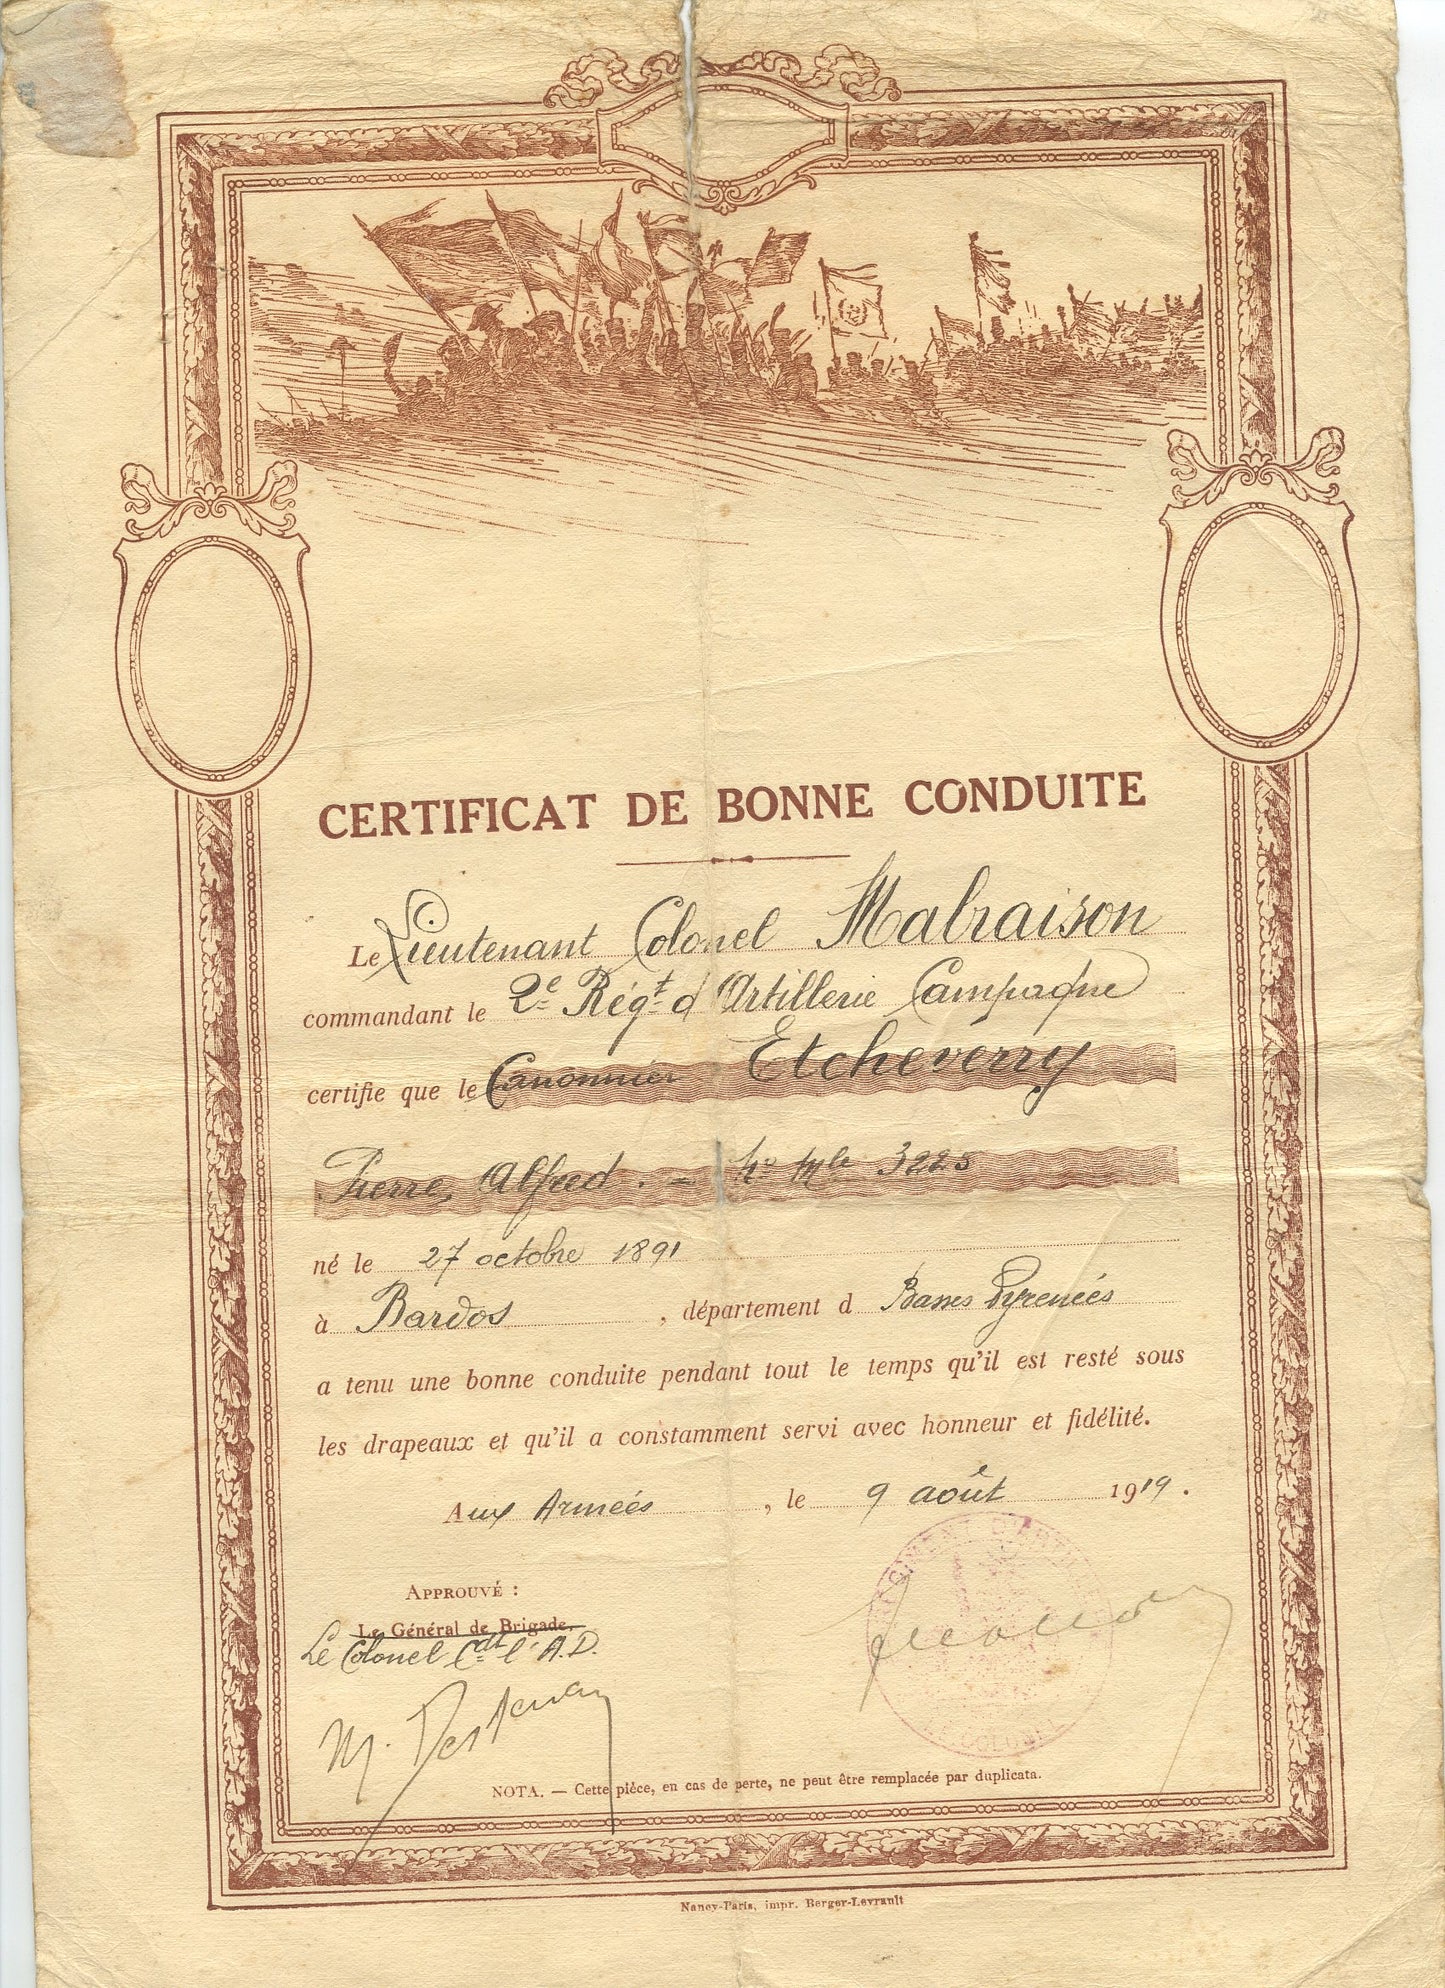 CERTIFICAT DE BONNE CONDUITE
Le Lieutenant Colonel Malraison
commandant le 2e Régt d'Artillerie Campagne
certifie que le Canonnier Etcheverry
Pierre, Alfred. — No Mle 3225
né le 27 octobre 1891
à Bardos, département d Basses Pyrenées
a tenu une bonne conduite pendant tout le temps qu'il est resté sous
les drapeaux et qu'il a constamment servi avec honneur et fidélité.
Aux Armées, le 9 août 1919.
APPROUVÉ :
Le Général de Brigade,
Le Colonel Cdt l'A.D.
NOTA. — Cette pièce, en cas de perte, ne peut être remplacée par duplicata.
Nancy-Paris, impr. Berger-Levrault